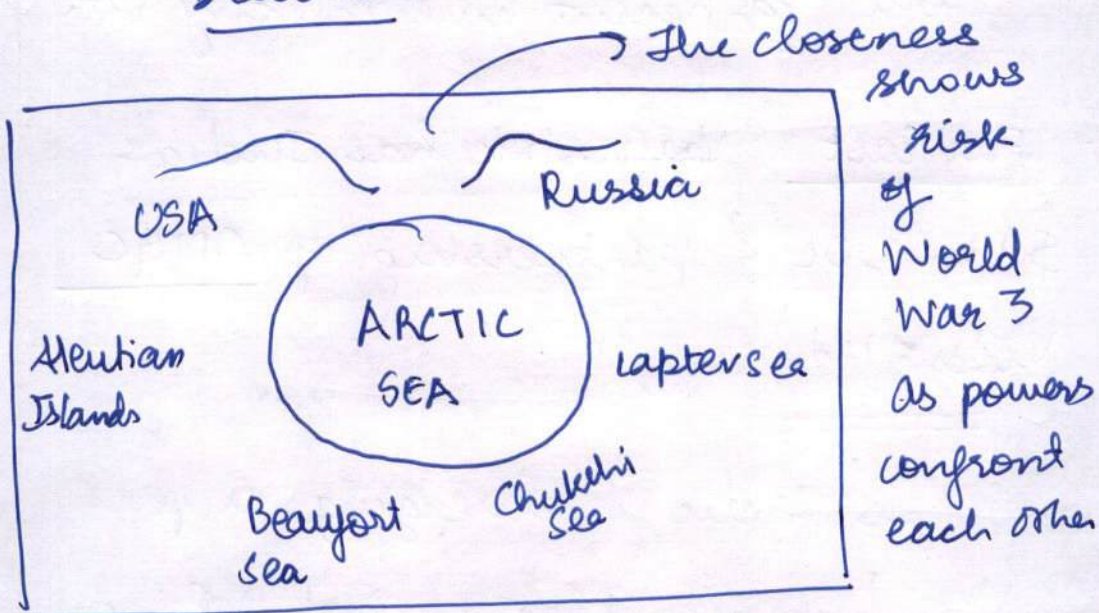 The closeness
shows
risk
of
World
War 3
as powers
confront
each other
USA
Russia
ARCTIC
SEA
Aleutian
Islands
Laptev sea
Beaufort
sea
Chukchi
sea